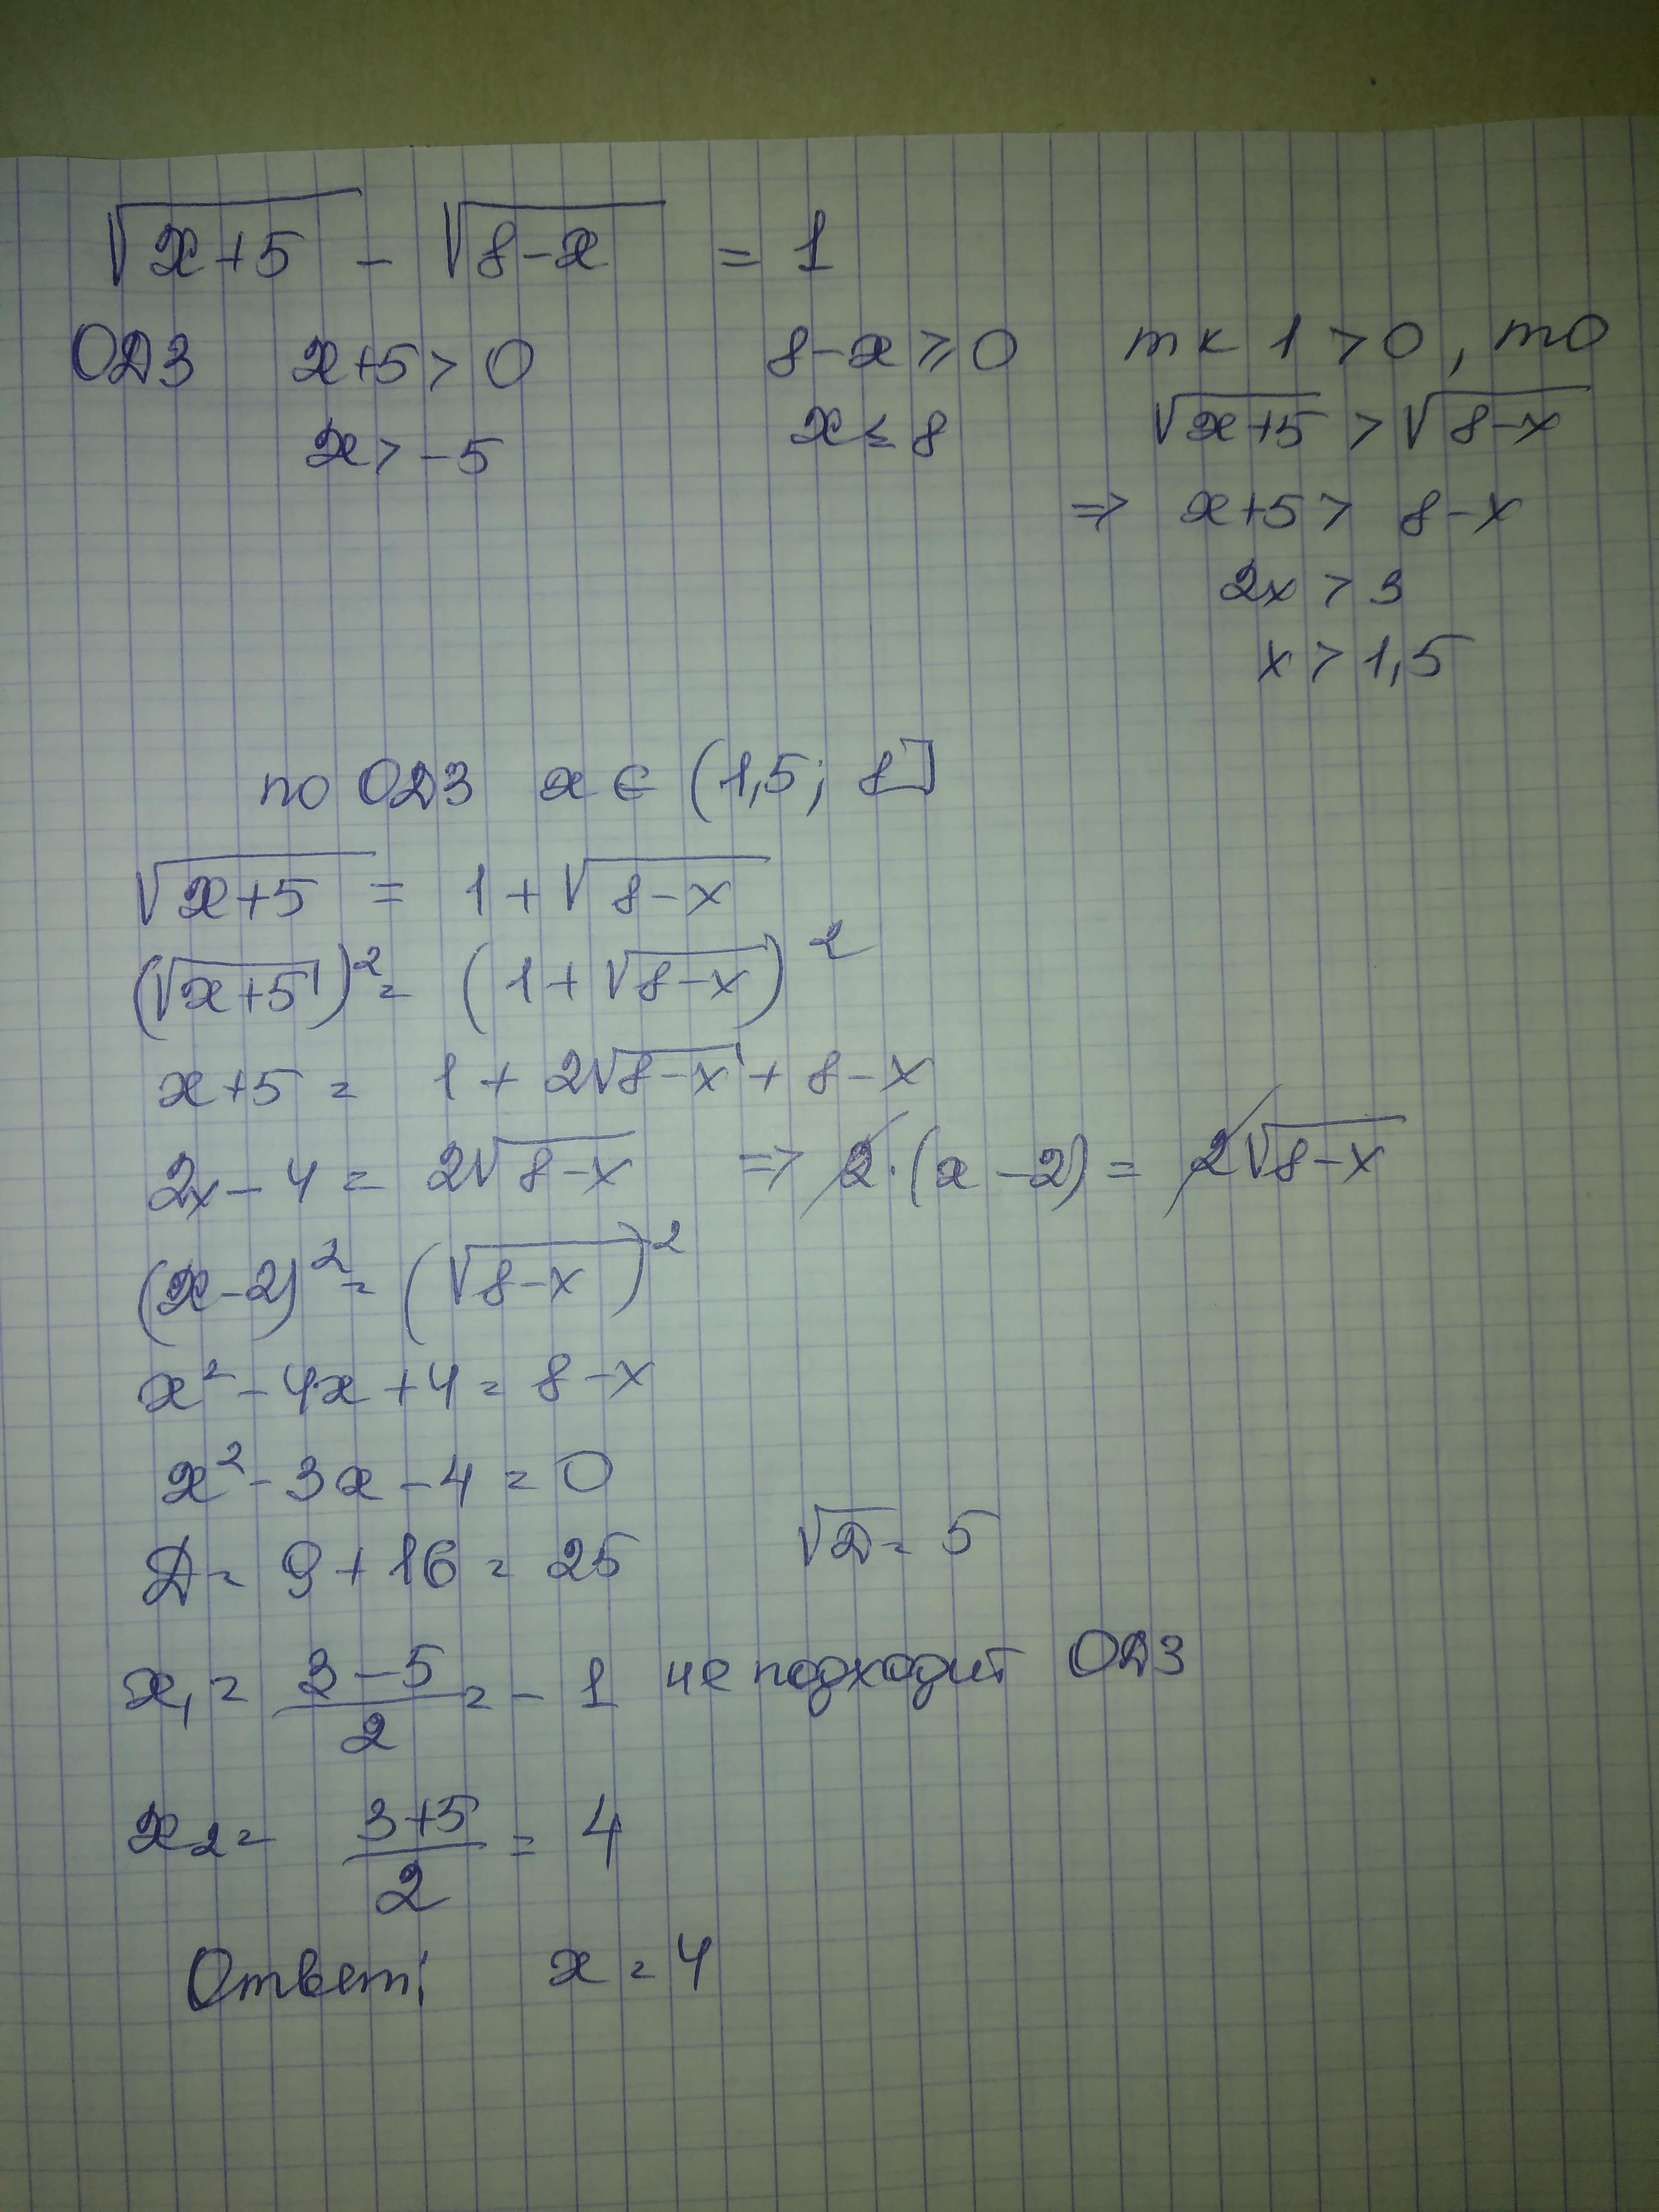 √(x+5) - √(8-x) = 1
ОДЗ x+5 > 0 8-x ⩾ 0 тк 1 > 0, то
x > -5 x ≤ 8 √(x+5) > √(8-x)
=> x+5 > 8-x
2x > 3
x > 1,5
по ОДЗ x ∈ (1,5; 8]
√(x+5) = 1 + √(8-x)
(√(x+5))² = (1 + √(8-x))²
x+5 = 1 + 2√(8-x) + 8-x
2x - 4 = 2√(8-x) => 2·(x-2) = 2√(8-x)
(x-2)² = (√(8-x))²
x² - 4x + 4 = 8-x
x² - 3x - 4 = 0
Д = 9 + 16 = 25 √Д = 5
x₁ = (3-5)/2 = -1 не подходит ОДЗ
x₂ = (3+5)/2 = 4
Ответ: x = 4